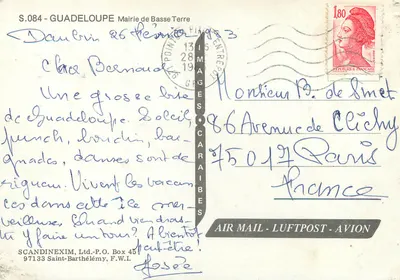 S.084 - GUADELOUPE Mairie de Basse Terre
Cher Bernard
Une grosse bise
de Guadeloupe. Soleil,
punch, boudin, bai-
gnades, danses sont de
rigueur. Vivent les vacan
ces dans cette île mer-
veilleuse. Quand viendras-
tu y faire un tour? A bientôt
peut-être!
Josée
SCANDINEXIM, Ltd.-P.O. Box 45
97133 Saint-Barthélémy, F.W.I.
IMAGES CARAIBES
1,80
Monsieur B. de Smet
86 Avenue de Clichy
75017 Paris
France
AIR MAIL - LUFTPOST - AVION